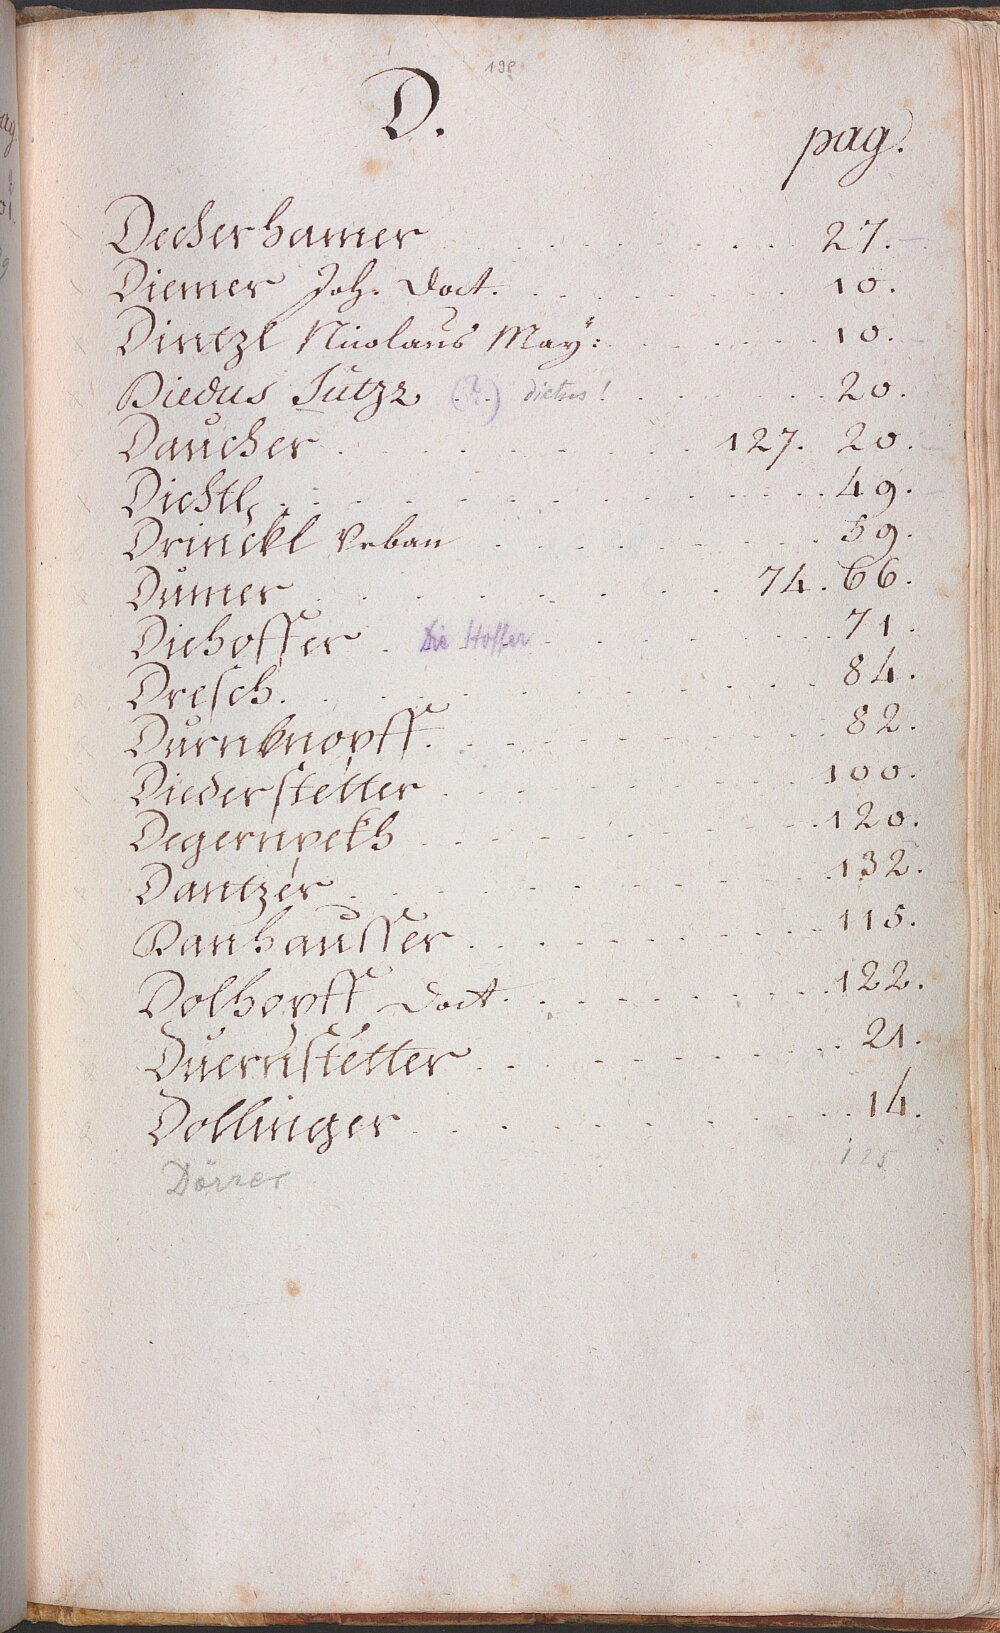 198
D.
pag.
Decherhamer . . . . . . . 27.
Diemer Joh. Doct. . . . . . . . 10.
Dintzl Nicolaus May: . . . . . . 10.
Diedus Tutzz (?) dictus! . . . . . 20.
Daucher . . . . . . . . 127. 20.
Dichtl . . . . . . . . . . . 49.
Drinckl Vrban . . . . . . . 59.
Dumer . . . . . . . . 74. 66.
Diehoffer . Die Hoffer . . . . . . 71.
Dresch. . . . . . . . . . . 84.
Durnknopff. . . . . . . . . 82.
Diederstetter . . . . . . . . 100.
Degernpekh . . . . . . . . 120.
Dantzer . . . . . . . . . 132.
Danhausser . . . . . . . . 115.
Dolhopff Doct. . . . . . . . 122.
Duernstetter . . . . . . . . 21.
Dollinger . . . . . . . . 14.
Dörrer 125